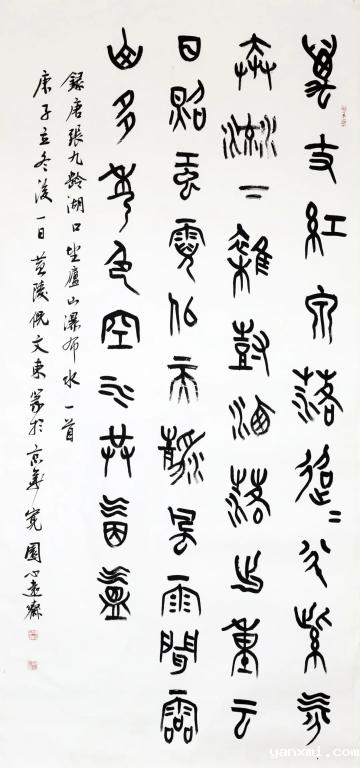 萬丈紅泉落迢〻半紫氛
奔流下雜尌灑落出重云
日照虹霓佀天靜風雨聞霝
山多秀色空水共氤氳
錄唐張九齡湖口望廬山瀑布水一首
庚子立冬後一日黃陵倪文東篆於京華寬園心遠齋
yanxmi.com